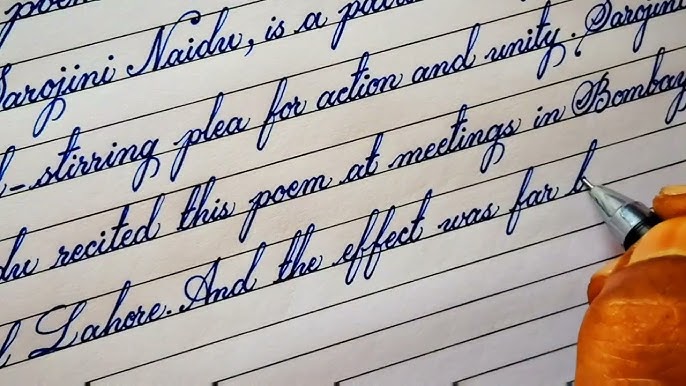 poem
Sarojini Naidu, is a
-stirring plea for action and unity. Sarojini
recited this poem at meetings in Bombay
Lahore. And the effect was far b